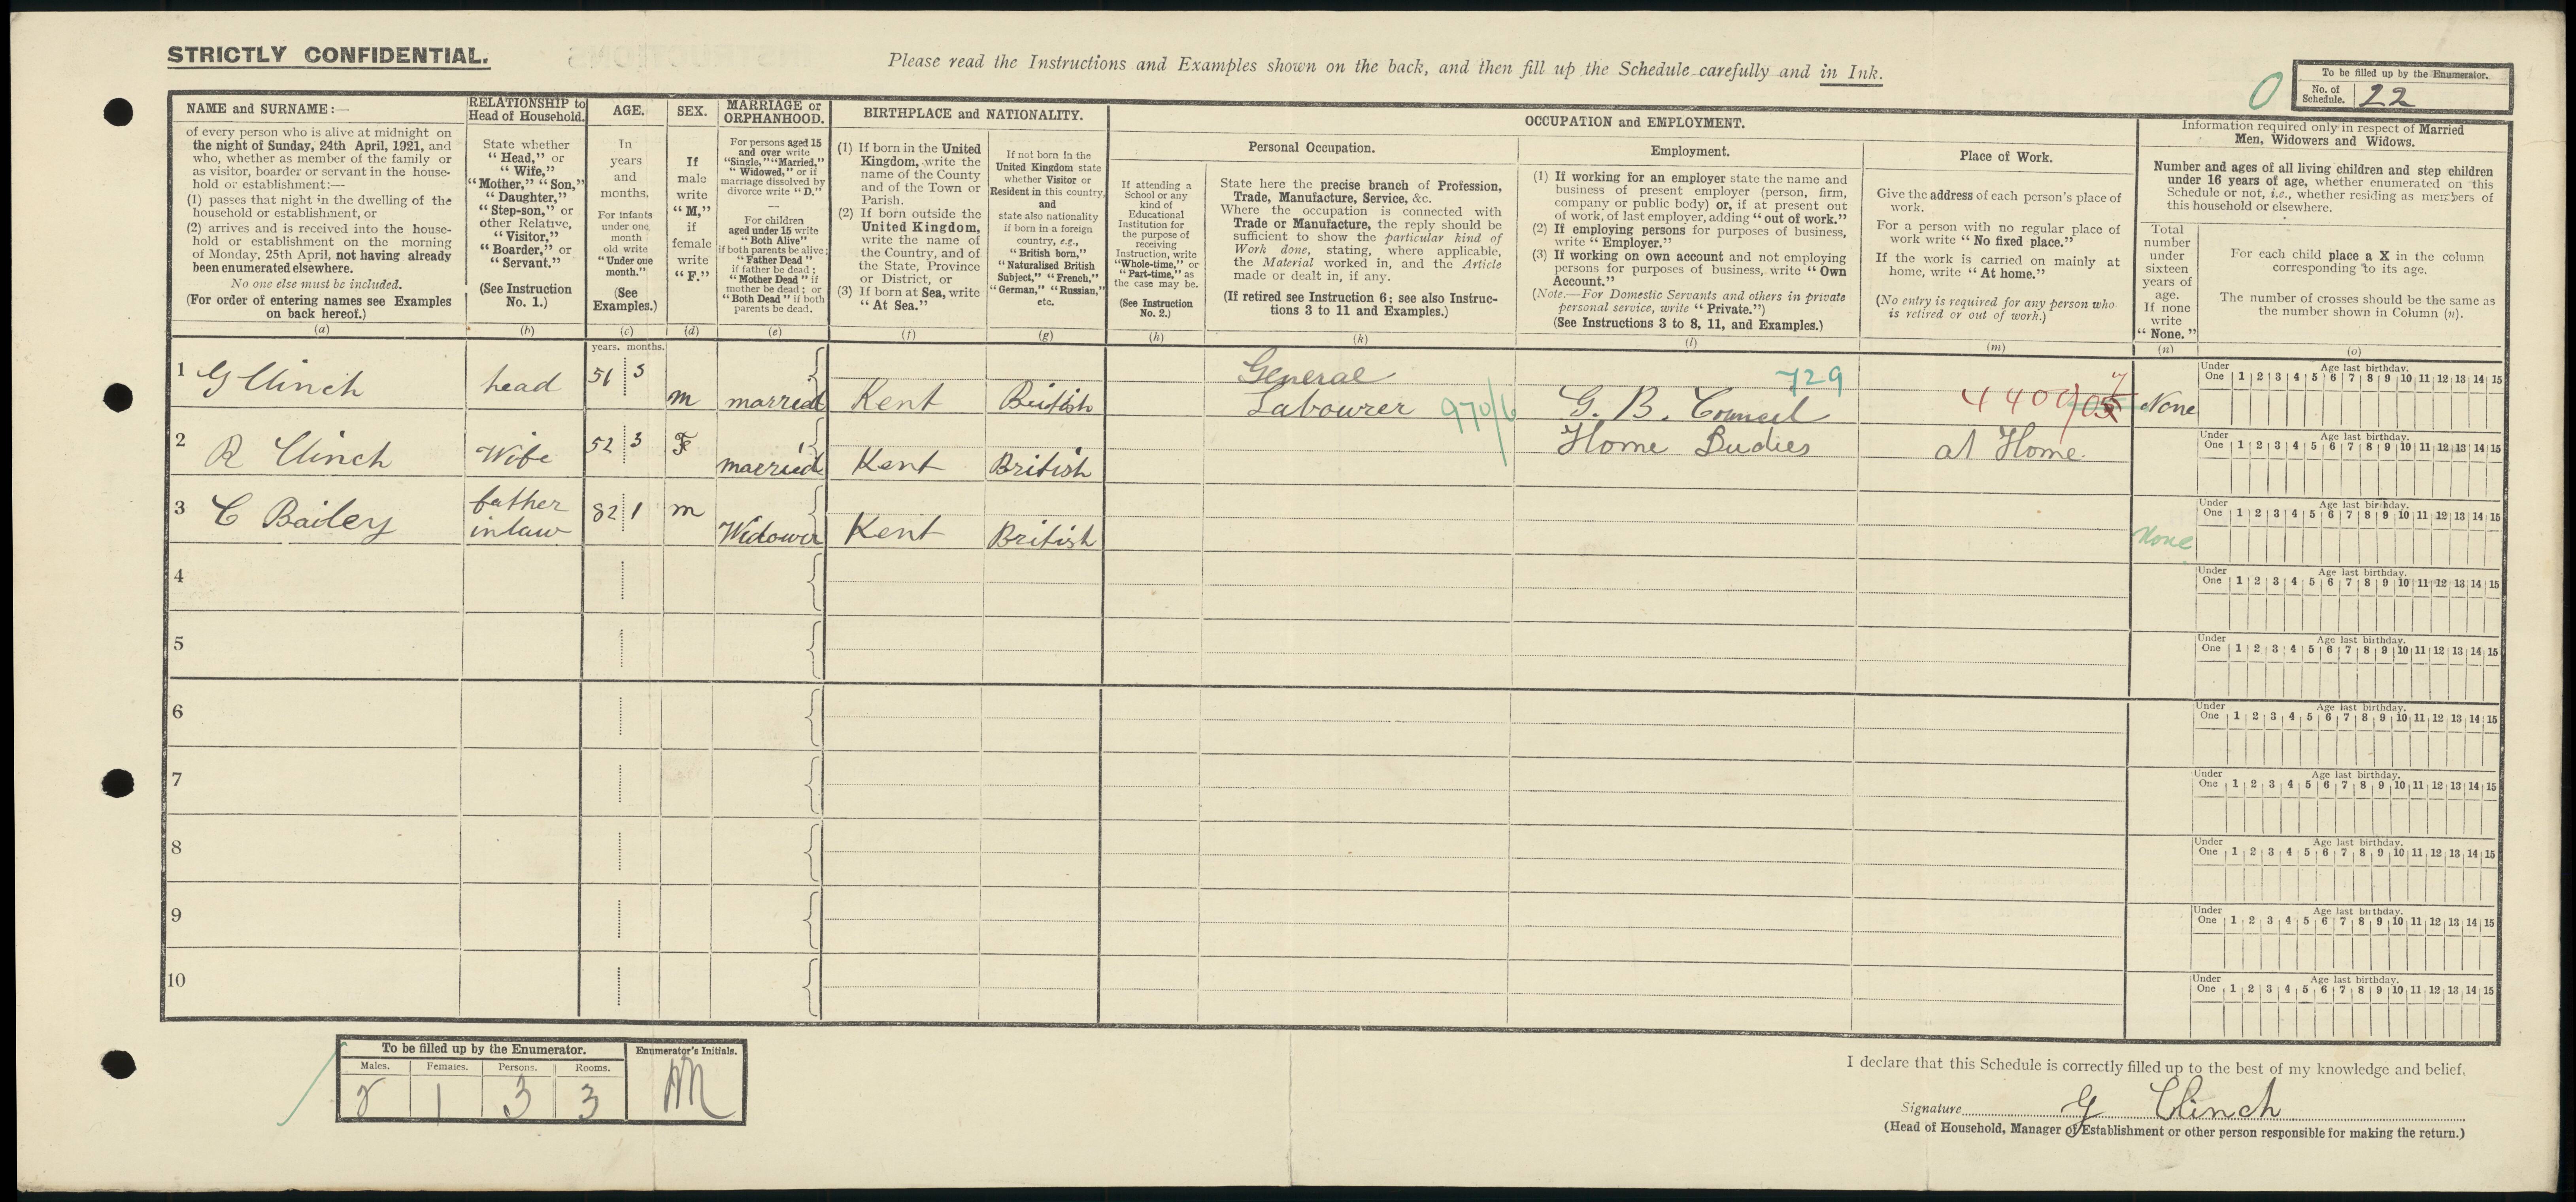 STRICTLY CONFIDENTIAL.
Please read the Instructions and Examples shown on the back, and then fill up the Schedule carefully and in Ink.
To be filled up by the Enumerator.
No. of Schedule. 22
0
NAME and SURNAME:—
of every person who is alive at midnight on
the night of Sunday, 24th April, 1921, and
who, whether as member of the family or
as visitor, boarder or servant in the house-
hold or establishment:—
(1) passes that night in the dwelling of the
household or establishment, or
(2) arrives and is received into the house-
hold or establishment on the morning
of Monday, 25th April, not having already
been enumerated elsewhere.
No one else must be included.
(For order of entering names see Examples
on back hereof.)
(a)
RELATIONSHIP to
Head of Household.
State whether
"Head," or
"Wife,"
"Mother," "Son,"
"Daughter,"
"Step-son," or
other Relative,
"Visitor,"
"Boarder," or
"Servant."
(See Instruction
No. 1.)
(b)
AGE.
In
years
and
months.
For infants
under one
month
old write
"Under one
month."
(See
Examples.)
(c)
SEX.
If
male
write
"M,"
if
female
write
"F."
(d)
MARRIAGE or
ORPHANHOOD.
For persons aged 15
and over write
"Single," "Married,"
"Widowed," or if
marriage dissolved by
divorce write "D."
—
For children
aged under 15 write
"Both Alive"
if both parents be alive;
"Father Dead"
if father be dead;
"Mother Dead" if
mother be dead; or
"Both Dead" if both
parents be dead.
(e)
BIRTHPLACE and NATIONALITY.
(1) If born in the United
Kingdom, write the
name of the County
and of the Town or
Parish.
(2) If born outside the
United Kingdom,
write the name of
the Country, and of
the State, Province
or District, or
(3) If born at Sea, write
"At Sea."
(f)
If not born in the
United Kingdom state
whether Visitor or
Resident in this country,
and
state also nationality
if born in a foreign
country, e.g.,
"British born,"
"Naturalised British
Subject," "French,"
"German," "Russian,"
etc.
(g)
OCCUPATION and EMPLOYMENT.
If attending a
School or any
kind of
Educational
Institution for
the purpose of
receiving
Instruction, write
"Whole-time," or
"Part-time," as
the case may be.
(See Instruction
No. 2.)
(h)
Personal Occupation.
State here the precise branch of Profession,
Trade, Manufacture, Service, &c.
Where the occupation is connected with
Trade or Manufacture, the reply should be
sufficient to show the particular kind of
Work done, stating, where applicable,
the Material worked in, and the Article
made or dealt in, if any.
(If retired see Instruction 6; see also Instruc-
tions 3 to 11 and Examples.)
(k)
Employment.
(1) If working for an employer state the name and
business of present employer (person, firm,
company or public body) or, if at present out
of work, of last employer, adding "out of work."
(2) If employing persons for purposes of business,
write "Employer."
(3) If working on own account and not employing
persons for purposes of business, write "Own
Account."
(Note.—For Domestic Servants and others in private
personal service, write "Private.")
(See Instructions 3 to 8, 11, and Examples.)
(l)
Place of Work.
Give the address of each person's place of
work.
For a person with no regular place of
work write "No fixed place."
If the work is carried on mainly at
home, write "At home."
(No entry is required for any person who
is retired or out of work.)
(m)
Information required only in respect of Married
Men, Widowers and Widows.
Number and ages of all living children and step children
under 16 years of age, whether enumerated on this
Schedule or not, i.e., whether residing as members of
this household or elsewhere.
Total
number
under
sixteen
years of
age.
If none
write
"None."
(n)
For each child place a X in the column
corresponding to its age.
The number of crosses should be the same as
the number shown in Column (n).
(o)
years. months.
1 G Clinch head 51 3 m married Kent British General Labourer 970/6 G. B. Council 729 None
Under One Age last birthday. 1 2 3 4 5 6 7 8 9 10 11 12 13 14 15
2 R Clinch Wife 52 3 F married Kent British Home Dudies at Home
Under One Age last birthday. 1 2 3 4 5 6 7 8 9 10 11 12 13 14 15
3 C Bailey father inlaw 82 1 m Widower Kent British None
Under One Age last birthday. 1 2 3 4 5 6 7 8 9 10 11 12 13 14 15
4
Under One Age last birthday. 1 2 3 4 5 6 7 8 9 10 11 12 13 14 15
5
Under One Age last birthday. 1 2 3 4 5 6 7 8 9 10 11 12 13 14 15
6
Under One Age last birthday. 1 2 3 4 5 6 7 8 9 10 11 12 13 14 15
7
Under One Age last birthday. 1 2 3 4 5 6 7 8 9 10 11 12 13 14 15
8
Under One Age last birthday. 1 2 3 4 5 6 7 8 9 10 11 12 13 14 15
9
Under One Age last birthday. 1 2 3 4 5 6 7 8 9 10 11 12 13 14 15
10
Under One Age last birthday. 1 2 3 4 5 6 7 8 9 10 11 12 13 14 15
To be filled up by the Enumerator.
Males. Females. Persons. Rooms.
2 1 3 3
Enumerator's Initials.
I declare that this Schedule is correctly filled up to the best of my knowledge and belief.
Signature G Clinch
(Head of Household, Manager of Establishment or other person responsible for making the return.)